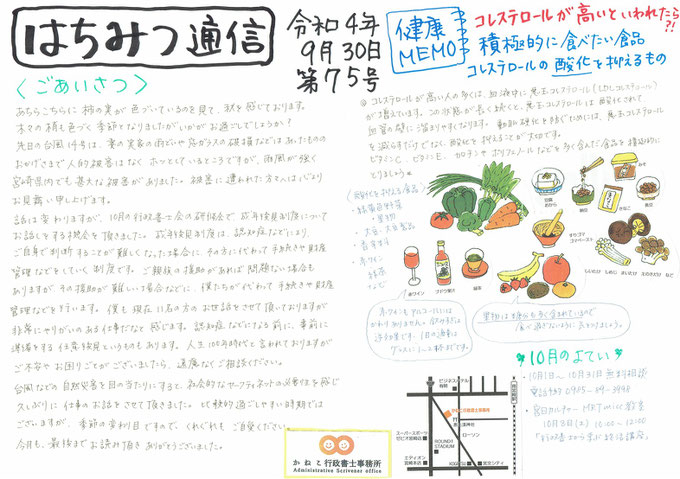 はちみつ通信
令和4年
9月30日
第75号
〈ごあいさつ〉
あちらこちらに柿の実が色づいているのを見て、秋を感じております。
木々の緑も色づく季節となりましたがいかがお過ごしでしょうか?
先日の台風14号は、妻の実家の雨どいや窓ガラスの破損などはあったものの
おかげさまで人的被害はなく ホッとしているところですが、雨風が強く
宮崎県内でも甚大な被害がありました。被害に遭われた方々へは心より
お見舞い申し上げます。
話は変わりますが、10月の行政書士会の研修会で成年後見制度について
お話しをする機会を頂きました。成年後見制度は、認知症などにより、
ご自身で判断することが難しくなった場合に、その方に代わって手続きや財産
管理などをしていく制度です。ご親族の援助があれば問題ない場合も
ありますが、その援助が難しい場合などに、僕たちが代わって手続きや財産
管理などを行います。僕も現在11名の方のお世話をさせて頂いておりますが
非常にやりがいのある仕事だなと感じます。認知症などになる前に、事前に
準備をする任意後見というものもあります。人生100年時代と言われておりますが
ご不安やお困りごとがございましたら、遠慮なくご相談ください。
台風などの自然災害を目の当たりにすると、社会的なセーフティネットの必要性を感じ
久しぶりに仕事のお話をさせて頂きました。比較的過ごしやすい時期では
ございますが、季節の変わり目ですので、くれぐれもご自愛ください。
今月も、最後までお読み頂きありがとうございました。
健康
MEMO
コレステロールが高いといわれたら?!
積極的に食べたい食品
コレステロールの酸化を抑えるもの
※コレステロールが高い人の多くは、血液中に悪玉コレステロール(LDLコレステロール)
が増えています。この状態が長く続くと、悪玉コレステロールは酸化されて
血管の壁に溜まりやすくなります。動脈硬化を防ぐためには、悪玉コレステロール
を減らすだけでなく、酸化を抑えることが大切です。
ビタミンC、ビタミンE、カロテンやポリフェノールなどを多く含んだ食品を積極的に
とりましょう。
〈酸化を抑える食品〉
・緑黄色野菜
・果物
・大豆・大豆製品
・赤ワイン
・緑茶
など
豆腐
納豆
みそ
きなこ
枝豆
すりゴマ
ゴマペースト
しいたけ
しめじ
まいたけ
えのきだけ
など
赤ワイン
ブドウ果汁
緑茶
赤ワインもアルコールには
かわりありません。飲みすぎは
注意です。1日の適量は
グラスに1〜2杯までです。
果物は糖分も多く含まれているので
食べ過ぎないように気をつけましょう。
10月のよてい
・10月1日〜10月31日 無料相談
電話予約 0985-89-3498
・宮日カルチャー CITY内の教室
10月8日(土) 10:00〜12:00
「行政書士から学ぶ終活講座」
ビジネスホテル
かねこ行政書士事務所
ローソン
ROUND1
STADIUM
スーパースポーツ
ゼビオ宮崎店
エディオン
宮崎本店
宮交シティ
かねこ行政書士事務所
Administrative Scrivener office